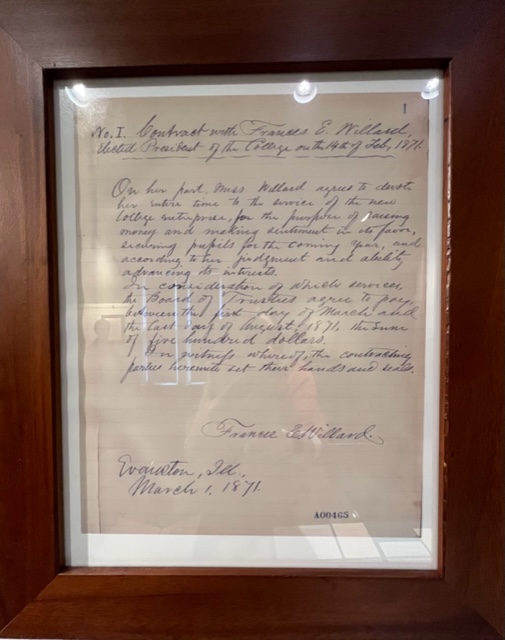 1
No. I. Contract with Frances E. Willard,
Elected President of the College on the 14th of Feb, 1871.
On her part, Miss Willard agrees to devote
her entire time to the service of the new
College enterprise, for the purpose of raising
money and making sentiment in its favor,
securing pupils for the coming year, and
according to her judgment and ability
advancing its interests.
In consideration of which services,
the Board of Trustees agree to pay,
between the first day of March and
the last day of August, 1871, the sum
of five hundred dollars.
In witness whereof, the contracting
parties hereunto set their hands and seals.
Frances E. Willard.
Evanston, Ill.
March 1, 1871.
A00465